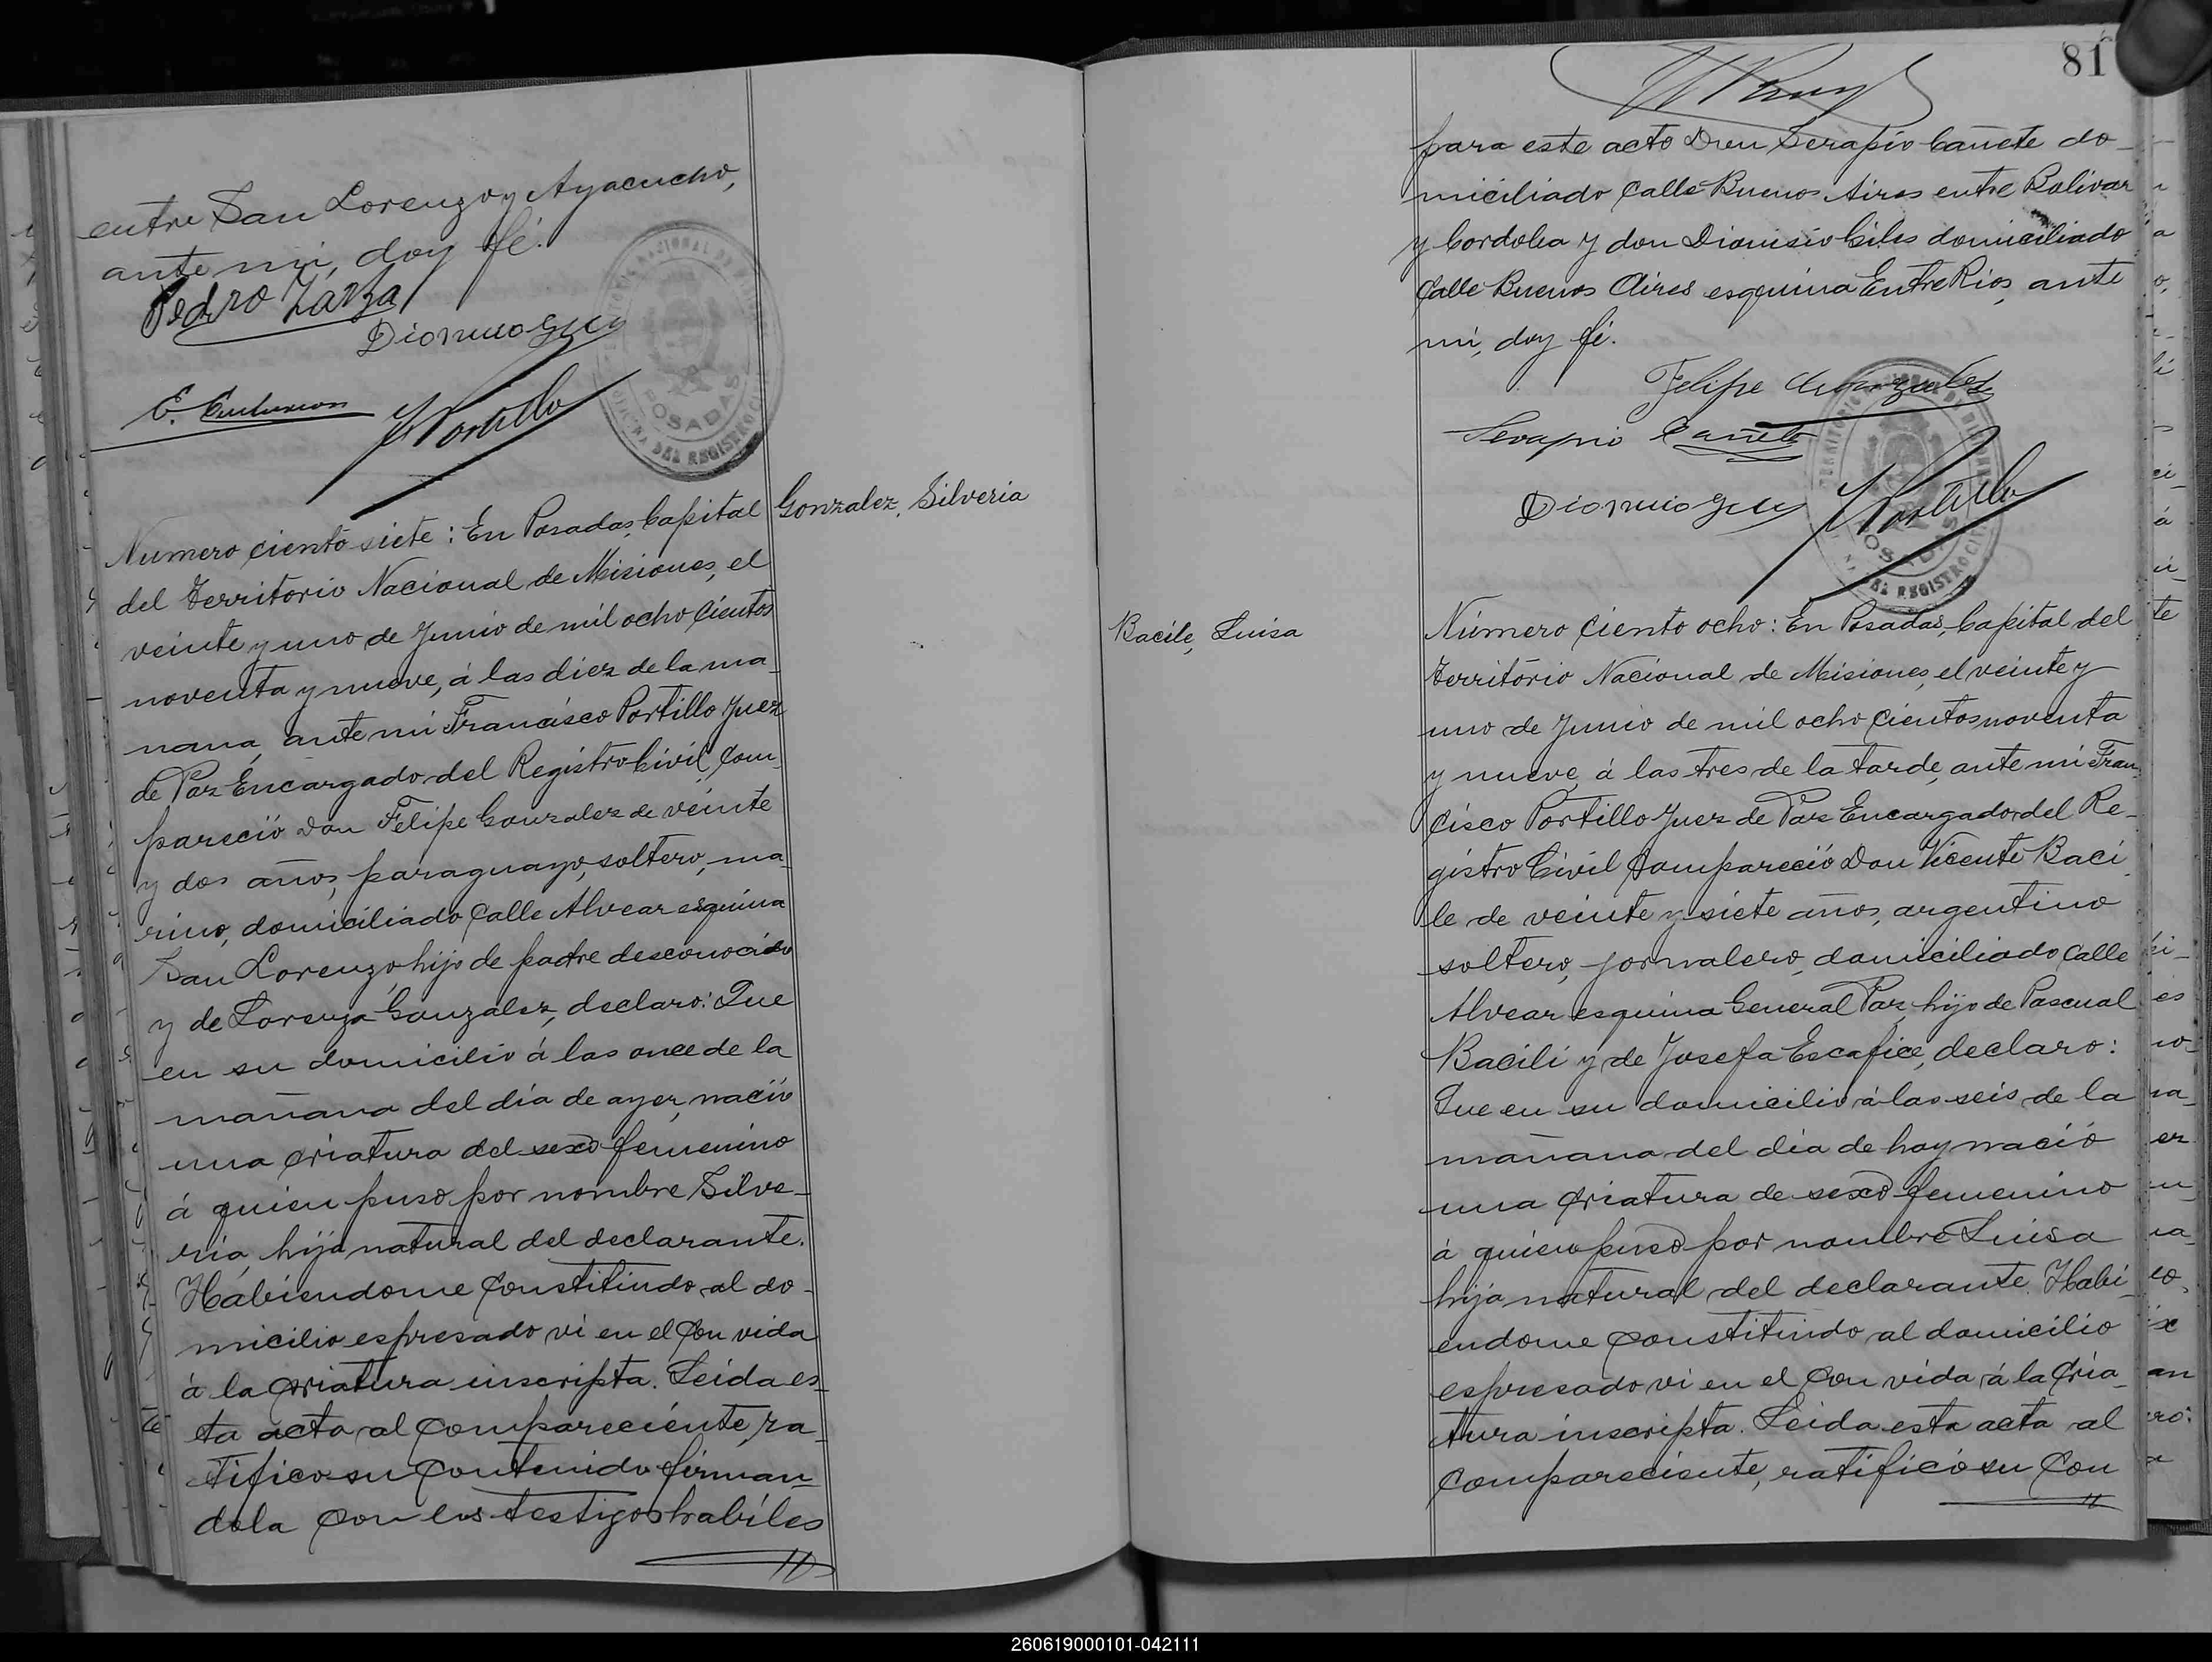 entre San Lorenzo y Ayacucho,
ante mi, doy fé.
Pedro Zarza
Dionicio Giles
F. Portillo
POSADAS
DEL REGISTRO CIVIL
Gonzalez, Silveria
Numero ciento siete: En Posadas, Capital
del Territorio Nacional de Misiones, el
veinte y uno de Junio de mil ocho cientos
noventa y nueve, á las diez de la ma-
nana, ante mi Francisco Portillo Juez
de Paz Encargado del Registro Civil, com-
pareció Don Felipe Gonzalez de veinte
y dos años, paraguayo, soltero, ma-
rino, domiciliado calle Alvear esquina
San Lorenzo, hijo de padre desconocido
y de Lorenza Gonzalez, declaro: Que
en su domicilio á las once de la
mañana del día de ayer, nació
una criatura del sexo femenino
á quien puso por nombre Silve-
ria, hija natural del declarante.
Habiendome constituido al do-
micilio espresado vi en el con vida
á la criatura inscripta. Leida es-
ta acta al compareciente, ra-
tifico su contenido firman-
dola con los testigos habiles
81
para este acto Don Serapio Cañete do-
miciliado calle Buenos Aires entre Bolivar
y Cordoba y don Dionisio Giles domiciliado
calle Buenos Aires esquina Entre Rios, ante
mi, doy fé.
Felipe Gonzalez
Serapio Cañete
Dionicio Giles
F. Portillo
DEL REGISTRO CIVIL
Bacile, Luisa
Número ciento ocho: En Posadas, Capital del
Territorio Nacional de Misiones, el veinte y
uno de Junio de mil ocho cientos noventa
y nueve, á las tres de la tarde, ante mi Fran-
cisco Portillo Juez de Paz Encargado del Re-
gistro Civil compareció Don Vicente Baci
le de veinte y siete años, argentino
soltero, jornalero, domiciliado calle
Alvear esquina General Paz, hijo de Pascual
Bacili y de Josefa Escafice, declaro:
Que en su domicilio á las seis de la
mañana del dia de hoy nació
una criatura de sexo femenino
á quien puso por nombre Luisa
hija natural del declarante. Habi-
endome constituido al domicilio
espresado vi en el con vida á la cria-
tura inscripta. Leida esta acta al
compareciente, ratificó su con
260619000101-042111